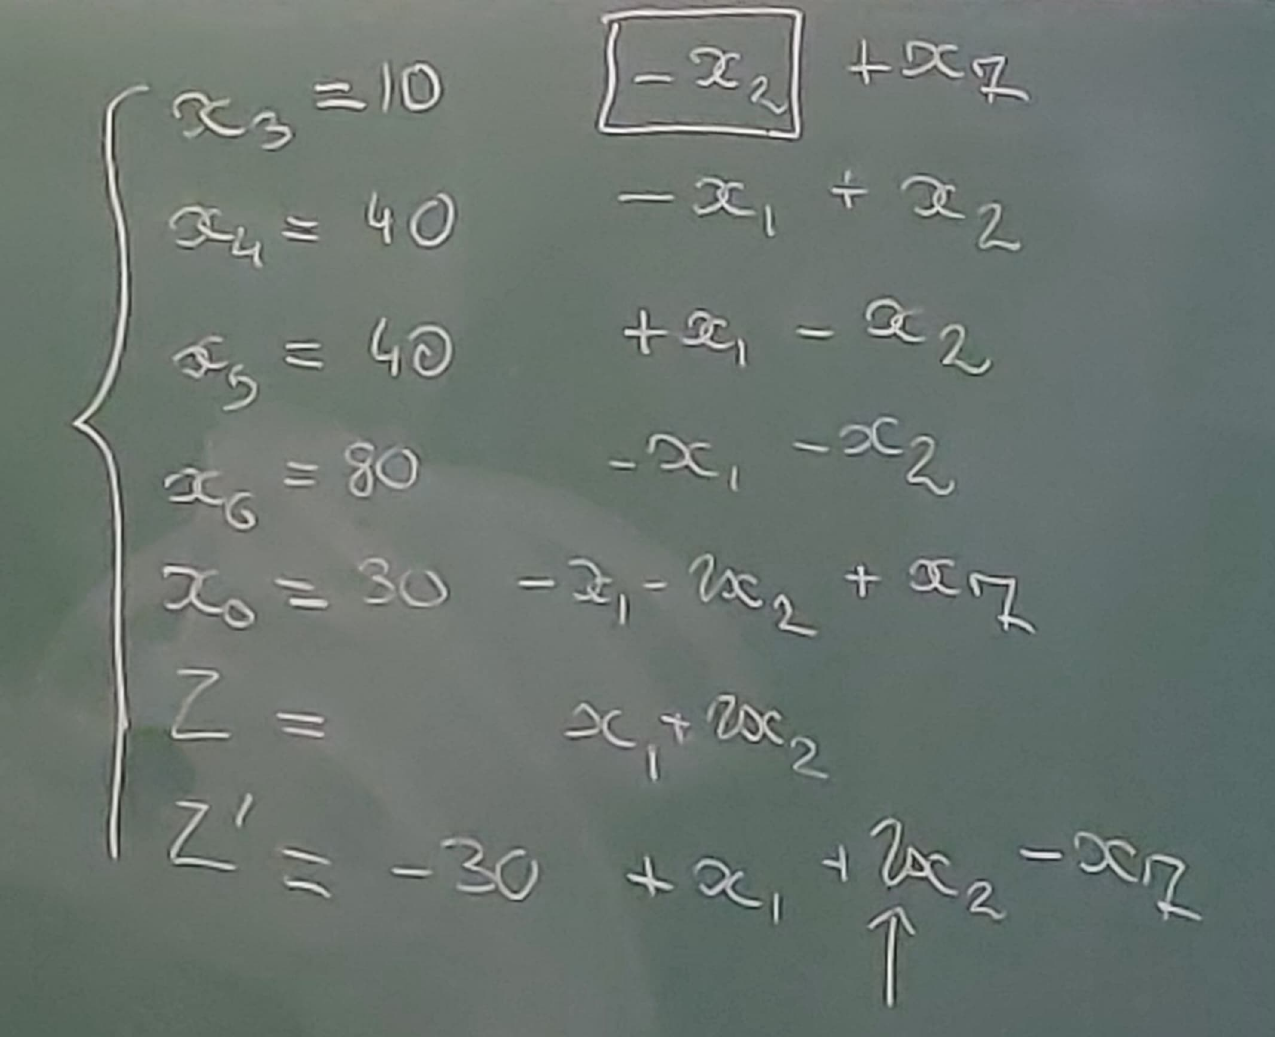 x₃ = 10 - x₂ + x₇
x₄ = 40 - x₁ + x₂
x₅ = 40 + x₁ - x₂
x₆ = 80 - x₁ - x₂
x₀ = 30 - x₁ - 2x₂ + x₇
Z = x₁ + 2x₂
Z' = -30 + x₁ + 2x₂ - x₇
↑